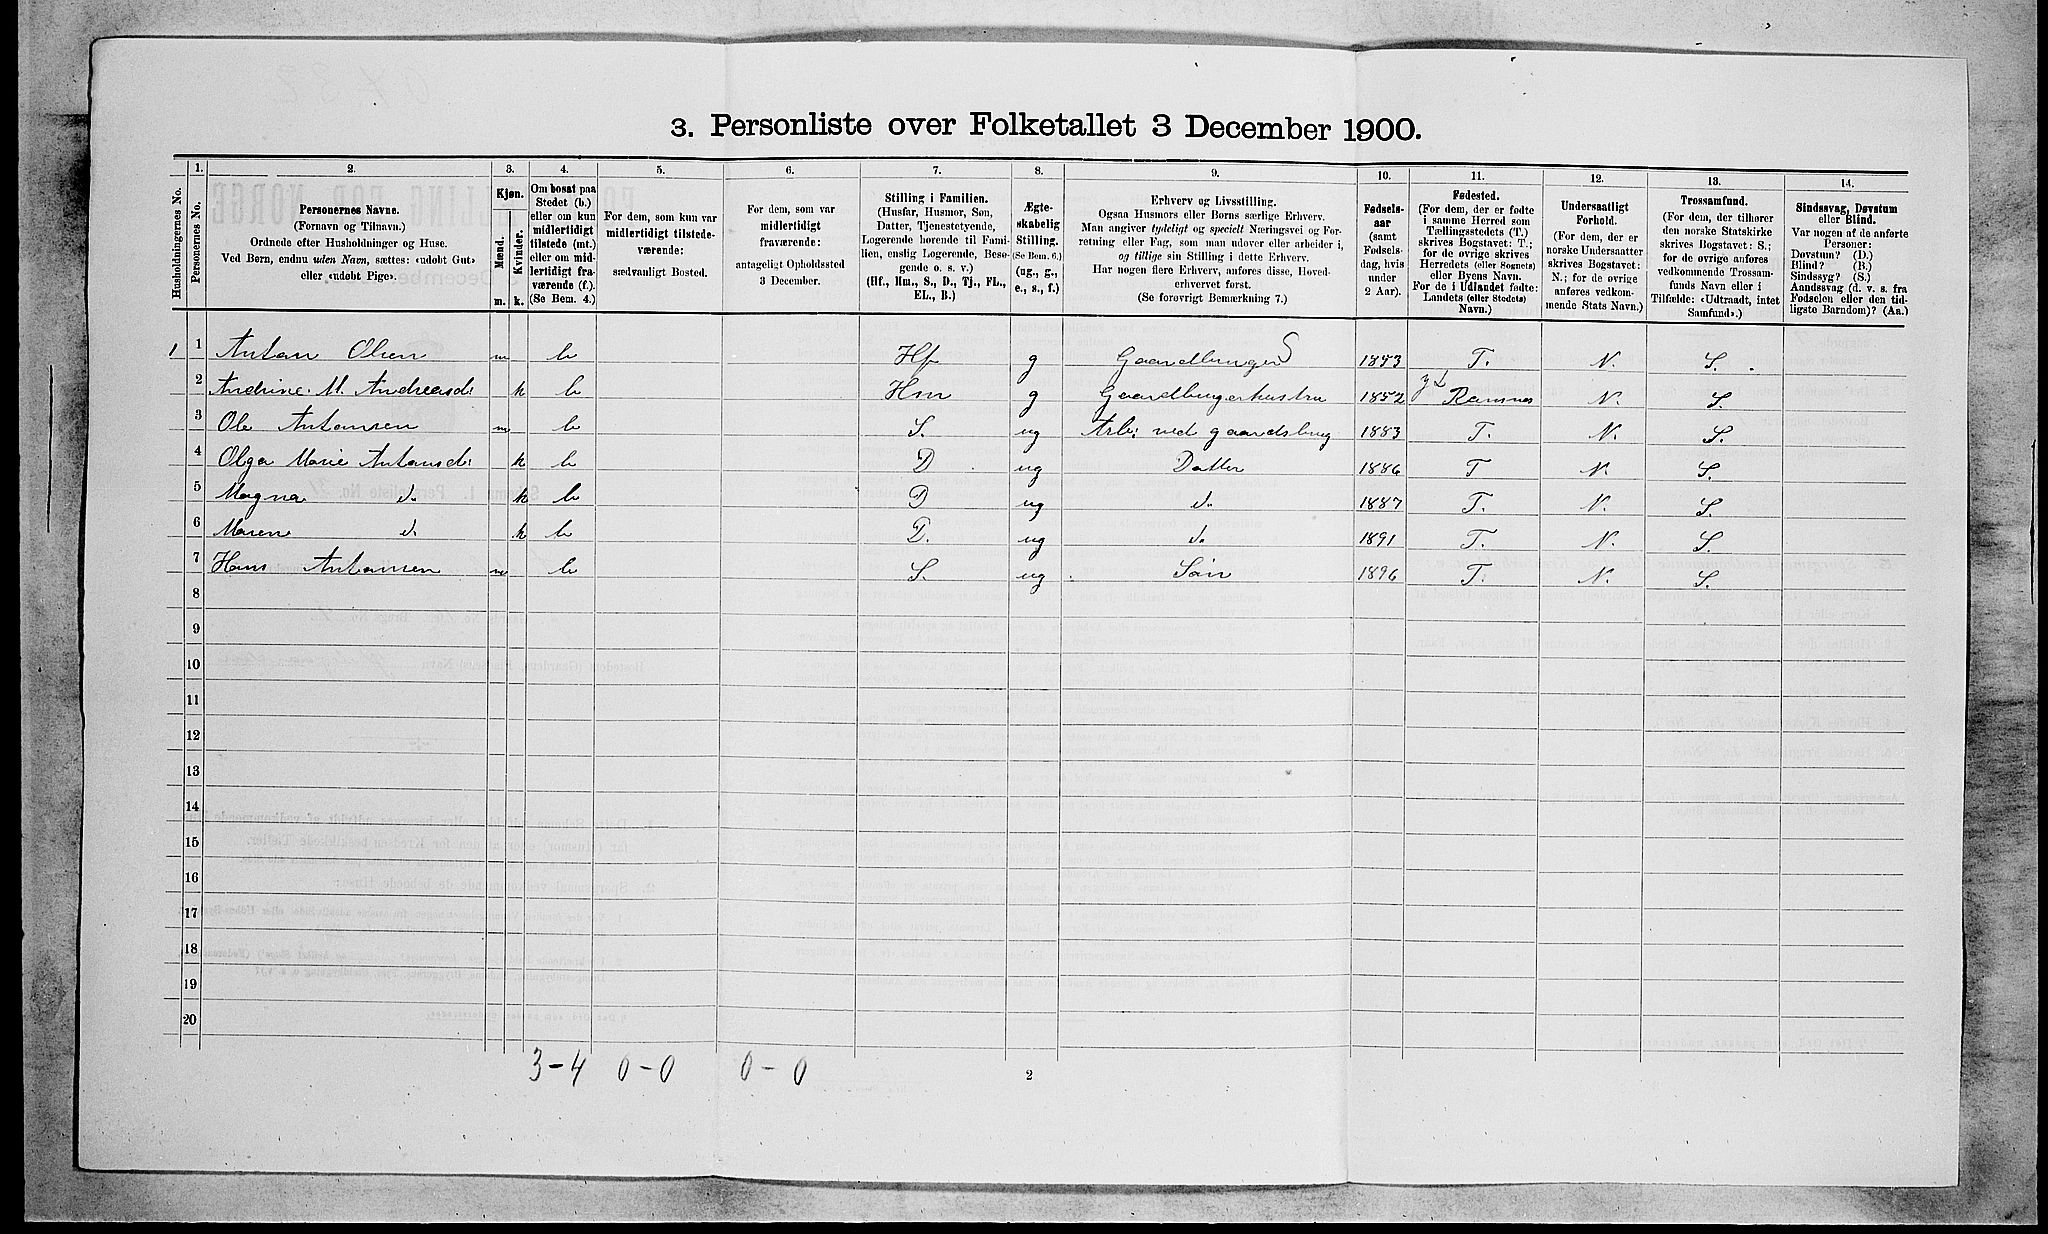 3. Personliste over Folketallet 3 December 1900.
1. 2. 3. 4. 5. 6. 7. 8. 9. 10. 11. 12. 13. 14.
Husholdningernes No.
Personernes No.
Personernes Navne.
(Fornavn og Tilnavn.)
Ordnede efter Husholdninger og Huse.
Ved Børn, endnu uden Navn, sættes: «udøbt Gut»
eller «udøbt Pige».
Kjøn.
Mænd.
Kvinder.
m. k.
Om bosat paa
Stedet (b.)
eller om kun
midlertidigt
tilstede (mt.)
eller om mid-
lertidigt fra-
værende (f.).
(Se Bem. 4.)
For dem, som kun var
midlertidigt tilstede-
værende:
sædvanligt Bosted.
For dem, som var
midlertidigt
fraværende:
antageligt Opholdssted
3 December.
Stilling i Familien.
(Husfar, Husmor, Søn,
Datter, Tjenestetyende,
Logerende hørende til Fami-
lien, enslig Logerende, Besø-
gende o. s. v.)
(Hf., Hm., S., D., Tj., FL.,
EL., B.)
Ægte-
skabelig
Stilling.
(Se Bem. 6.)
(ug., g.,
e., s., f.)
Erhverv og Livsstilling.
Ogsaa Husmors eller Børns særlige Erhverv.
Man angiver tydeligt og specielt Næringsvei og For-
retning eller Fag, som man udøver eller arbeider i,
og tillige sin Stilling i dette Erhverv.
Har nogen flere Erhverv, anføres disse, Hoved-
erhvervet først.
(Se forøvrigt Bemærkning 7.)
Fødsels-
aar
(samt
Fødsels-
dag, hvis
under
2 Aar).
Fødested.
(For dem, der er fødte
i samme Herred som
Tællingsstedets (T.)
skrives Bogstavet: T.;
for de øvrige skrives
Herredets (eller Sognets)
eller Byens Navn.
For de i Udlandet fødte:
Landets (eller Stedets)
Navn.)
Undersaatligt
Forhold.
(For dem, der er
norske Undersaatter
skrives Bogstavet:
N.; for de øvrige
anføres vedkom-
mende Stats Navn.)
Trossamfund.
(For dem, der tilhører
den norske Statskirke
skrives Bogstavet: S.;
for de øvrige anføres
vedkommende Trossam-
funds Navn eller i
Tilfælde: «Udtraadt, intet
Samfund».)
Sindssvag, Døvstum
eller Blind.
Var nogen af de anførte
Personer:
Døvstum? (D.)
Blind? (B.)
Sindssyg? (S.)
Aandssvag (d. v. s. fra
Fødselen eller den tid-
ligste Barndom)? (Aa.)
1 1 Anton Olsen m b Hf g Gaardbruger S 1853 T. N. S.
2 Andrine M. Andreasd: k b Hm g Gaardbrugerhustru 1852 Ramnes N. S.
3 Ole Antonsen m b S. ug Arb: ved gaardsbrug 1883 T. N. S.
4 Olga Marie Antonsd: k b D ug Datter 1886 T N. S.
5 Magna do k b D ug do 1887 T. N. S.
6 Maren do k b D. ug do 1891 T. N. S.
7 Hans Antonsen m b S. ug Søn 1896 T. N. S.
8
9
10
11
12
13
14
15
16
17
18
19
20
3-4 0-0 0-0
2